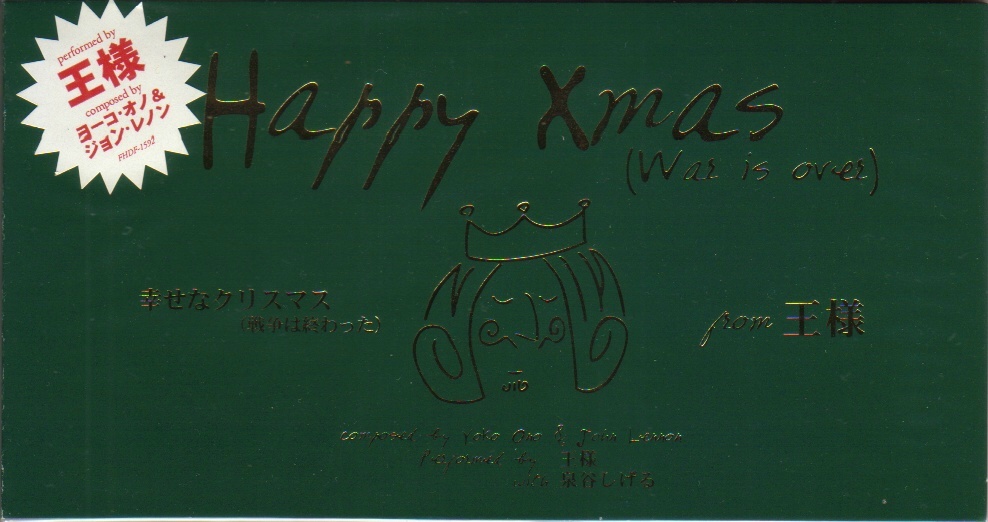 performed by
王様
composed by
ヨーコ・オノ&
ジョン・レノン
FHDF-1592
Happy Xmas
(War is over)
幸せなクリスマス
(戦争は終わった)
from 王様
composed by Yoko Ono & John Lennon
Performed by 王様
with 泉谷しげる